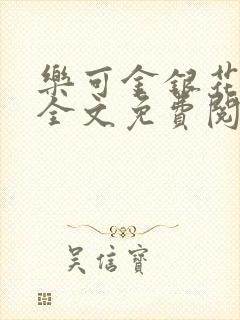 樂可金銀花
全文免費閱
吳信寶